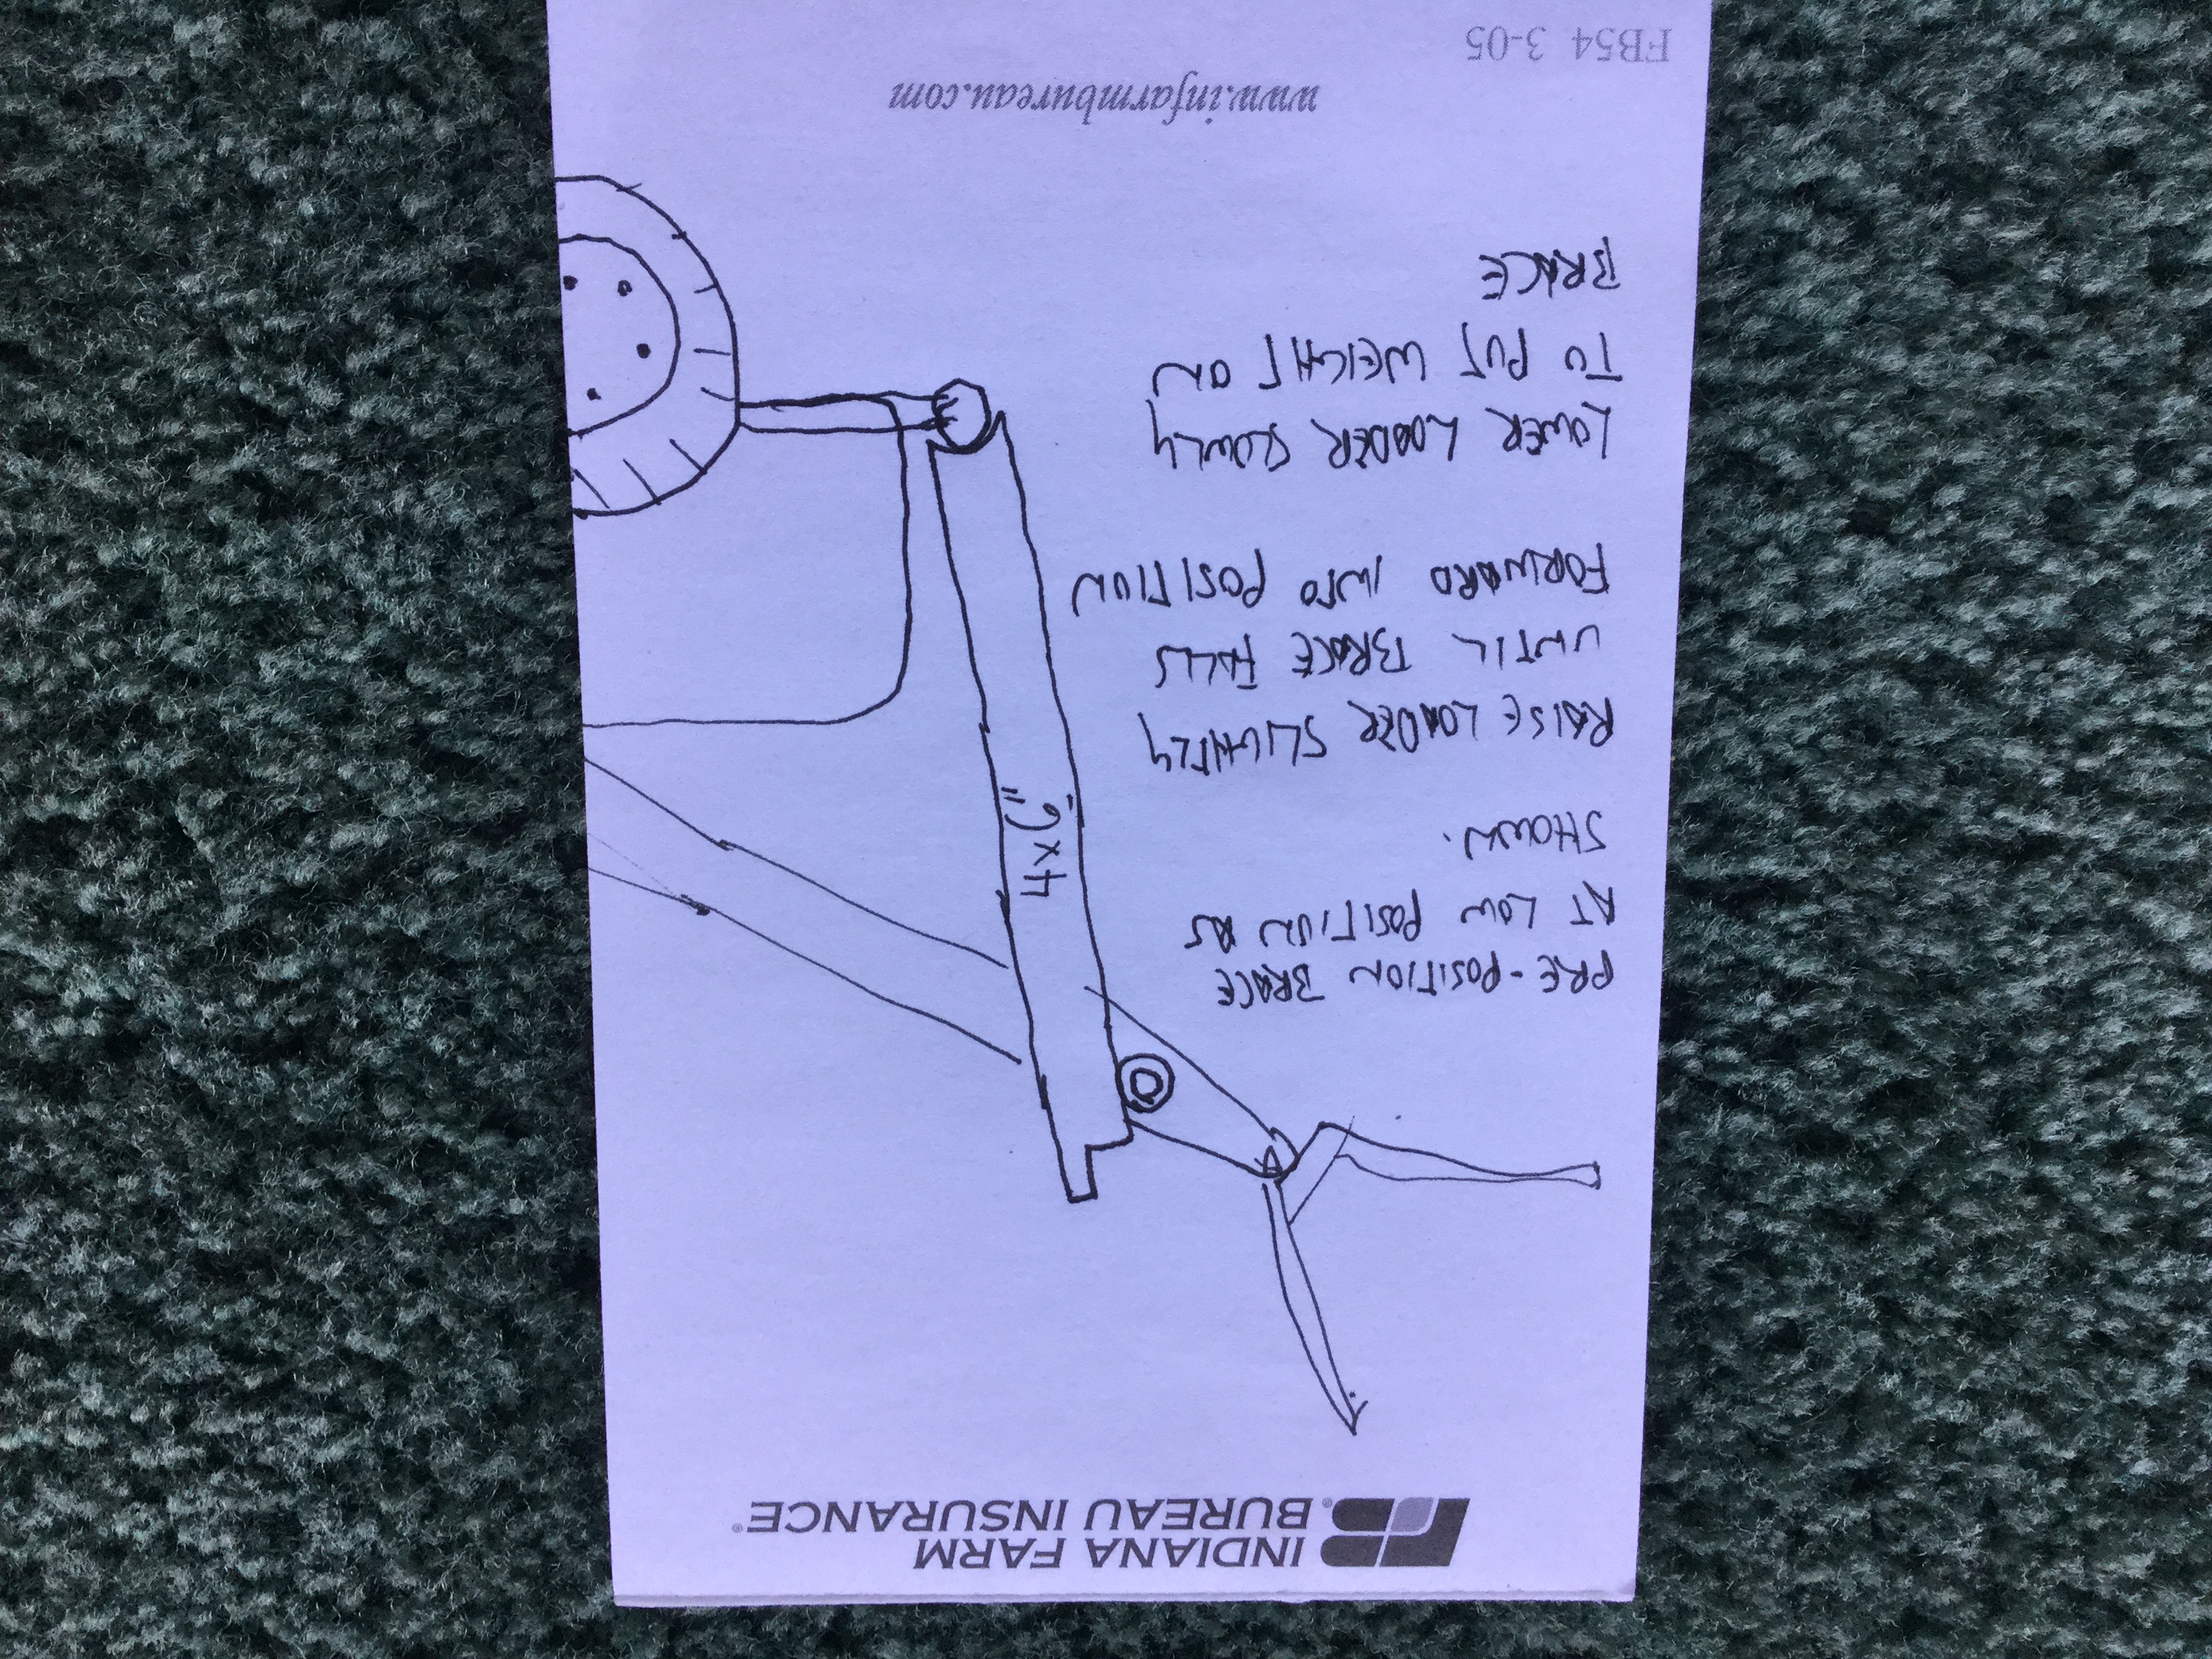 INDIANA FARM
BUREAU INSURANCE®
PRE-POSITION BRACE
AT LOW POSITION AS
SHOWN.
RAISE LOADER SLIGHTLY
UNTIL BRACE FALLS
FORWARD INTO POSITION
LOWER LOADER SLOWLY
TO PUT WEIGHT ON
BRACE
4x6"
www.infarmbureau.com
FB54 3-05